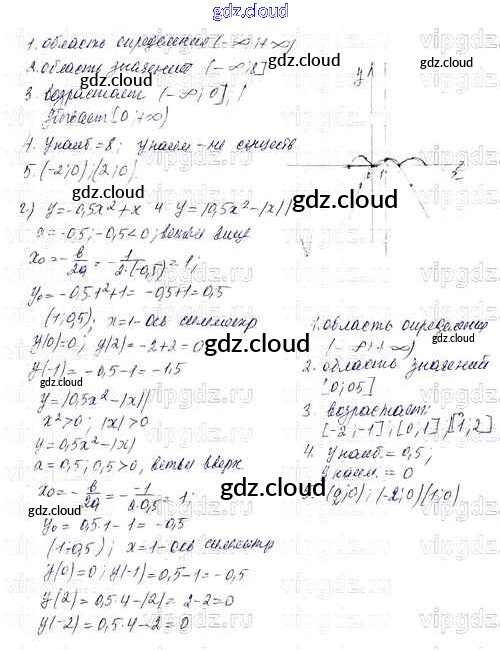 gdz.cloud
1. область определения (-∞;+∞)
2. область значений (-∞; 8]
3. возрастает (-∞; 0],
убывает [0; +∞)
4. y наиб.=8; y наим - не существ
5. (-2; 0), (2; 0).
г) y=-0,5x²+x и y=|0,5x²-|x||
a=-0,5; -0,5<0; ветви вниз
x₀=-b/2a=-1/2·(-0,5)=1;
y₀=-0,5·1²+1=-0,5+1=0,5
(1; 0,5); x=1-ось симметр
y(0)=0; y(2)=-2+2=0
y(-1)=-0,5-1=-1,5
y=|0,5x²-|x||
x²>0; |x|>0
y=0,5x²-|x|
a=0,5; 0,5>0, ветви вверх
x₀=-b/2a=--1/2·0,5=1;
y₀=0,5·1-1=-0,5
(1;-0,5); x=1-ось симметр
y(0)=0; y(-1)=0,5-1=-0,5
y(2)=0,5·4-|2|=2-2=0
y(-2)=0,5·4-2=0
1. область определения
(-∞;+∞)
2. область значений
[0; 0,5]
3. возрастает:
[-2;-1]; [0,1] [1,2]
4. y наиб.=0,5;
y наим.=0
(2;0); (-2;0)(1;0)